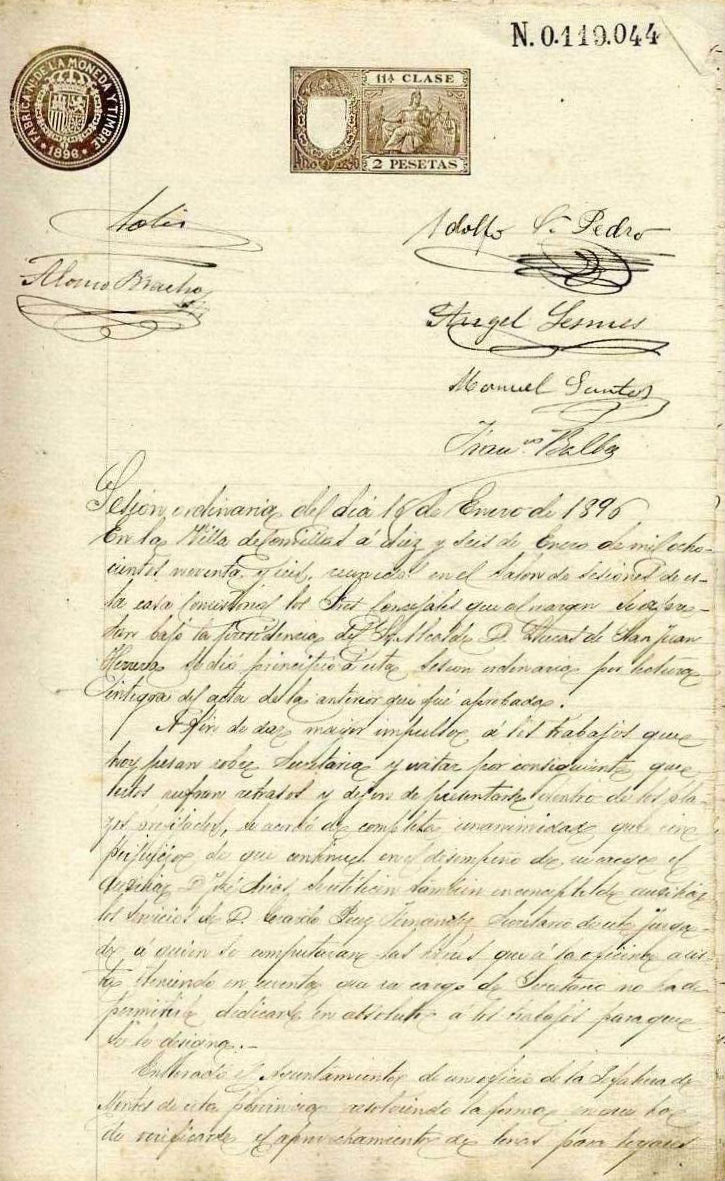 N. 0.119.044
FABRICA Nal DE LA MONEDA Y TIMBRE
1896
11ª CLASE
2 PESETAS
Solis
Adolfo Sn. Pedro
Alonso Bracho
Angel Lesmes
Manuel Santos
Francus. Balba
Sesión ordinaria del dia 16 de Enero de 1896
En la Villa de á diez y seis de Enero de mil ocho-
cientos noventa y seis, reunidos en el Salon de sesiones de es-
ta casa Consistorial los Sres Concejales que al margen se espre-
san bajo la presidencia del Sr. Alcalde D. Lucas de San Juan
Herrera se dió principio á esta sesion ordinaria por lectura
integra del acta de la anterior que fué aprobada.
A fin de dar mayor impulso á los trabajos que
hoy pesan sobre Secretaria y evitar por consiguiente que
estos sufran retrasos y dejen de presentarse dentro de los pla-
zos señalados, se acordó de completa unanimidad que sin
perjuicio de que continue en el desempeño de su cargo el
auxiliar D. José Arias, se utilicen tambien en concepto de auxiliar
los servicios de D. Perez Fernandez Secretario de este juzga-
do, á quien se computaran las horas que á la oficina asis-
ta, teniendo en cuenta que su cargo de Secretario no ha de
permitirle dedicarse en absoluto á los trabajos para que
se le designa.-
Enterado el Ayuntamiento de un oficio de la Jefatura de
Montes de esta provincia resolviendo la forma en que ha
de verificarse el aprovechamiento de leñas para hogares